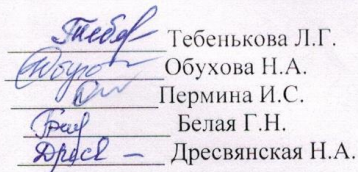 Тебенькова Л.Г.
Обухова Н.А.
Пермина И.С.
Белая Г.Н.
Дресвянская Н.А.